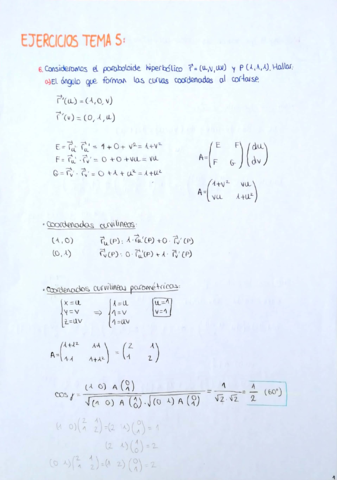 EJERCICIOS TEMA 5:
1. Consideramos el paraboloide hiperbólico r⃗=(u,v,uv) y P(1,1,1). Hallar:
a) El ángulo que forman las curvas coordenadas al cortarse
r⃗'(u)=(1,0,v)
r⃗'(v)=(0,1,u)
E=r⃗u'·r⃗u'=1+0+v²=1+v²
F=r⃗u'·r⃗v'=0+0+vu=vu
G=r⃗v'·r⃗v'=0+1+u²=1+u²
A=(E F
F G)(du
dv)
A=(1+v² vu
vu 1+u²)
· Coordenadas curvilíneas:
(1,0) r⃗u(P)=1·r⃗u'(P)+0·r⃗v'(P)
(0,1) r⃗v(P)=0·r⃗u'(P)+1·r⃗v'(P)
· Coordenadas curvilíneas paramétricas:
{x=u
y=v
z=uv
⇒ {1=u
1=v
1=uv
u=1
v=1
A=(1+1² 1·1
1·1 1+1²)=(2 1
1 2)
cos γ=(1 0) A (0
1) / √(1 0) A (1
0)·√(0 1) A (0
1) = 1/√2·√2 = 1/2 (60º)
(1 0)(2 1
1 2)=(2 1)(0
1)=1
(2 1)(1
0)=2
(0 1)(2 1
1 2)=(1 2)(0
1)=2
1